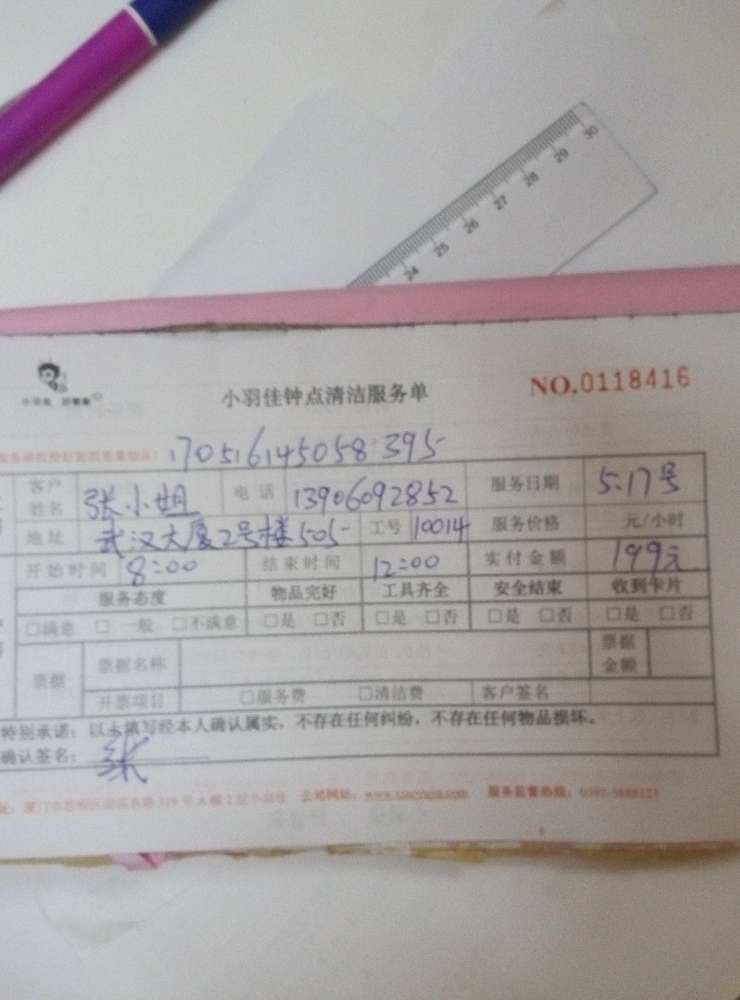 30
29
28
27
26
25
24
小羽佳钟点清洁服务单 NO.0118416
170516145058395
客户姓名 张小姐 电话 13906092852 服务日期 5.17号
地址 武汉大厦2号楼505 工号 10014 服务价格 元/小时
开始时间 8:00 结束时间 12:00 实付金额 199元
服务态度 物品完好 工具齐全 安全结束 收到卡片
□满意 □一般 □不满意 □是 □否 □是 □否 □是 □否 □是 □否
票据 票据名称 票据金额
开票项目 □服务费 □清洁费 客户签名
特别承诺：以上填写经本人确认属实，不存在任何纠纷，不存在任何物品损坏。
确认签名：张
公司网站： 服务监督热线：